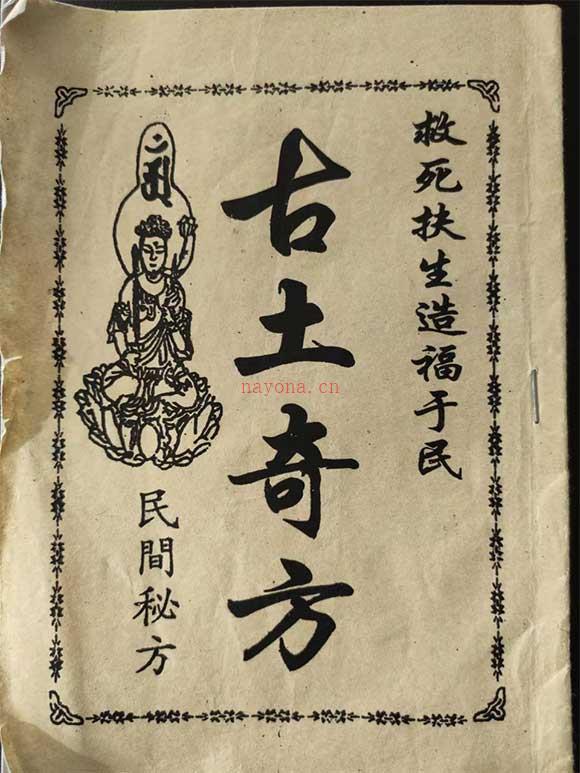 救死扶生造福于民
古土奇方
民間秘方
nayona.cn